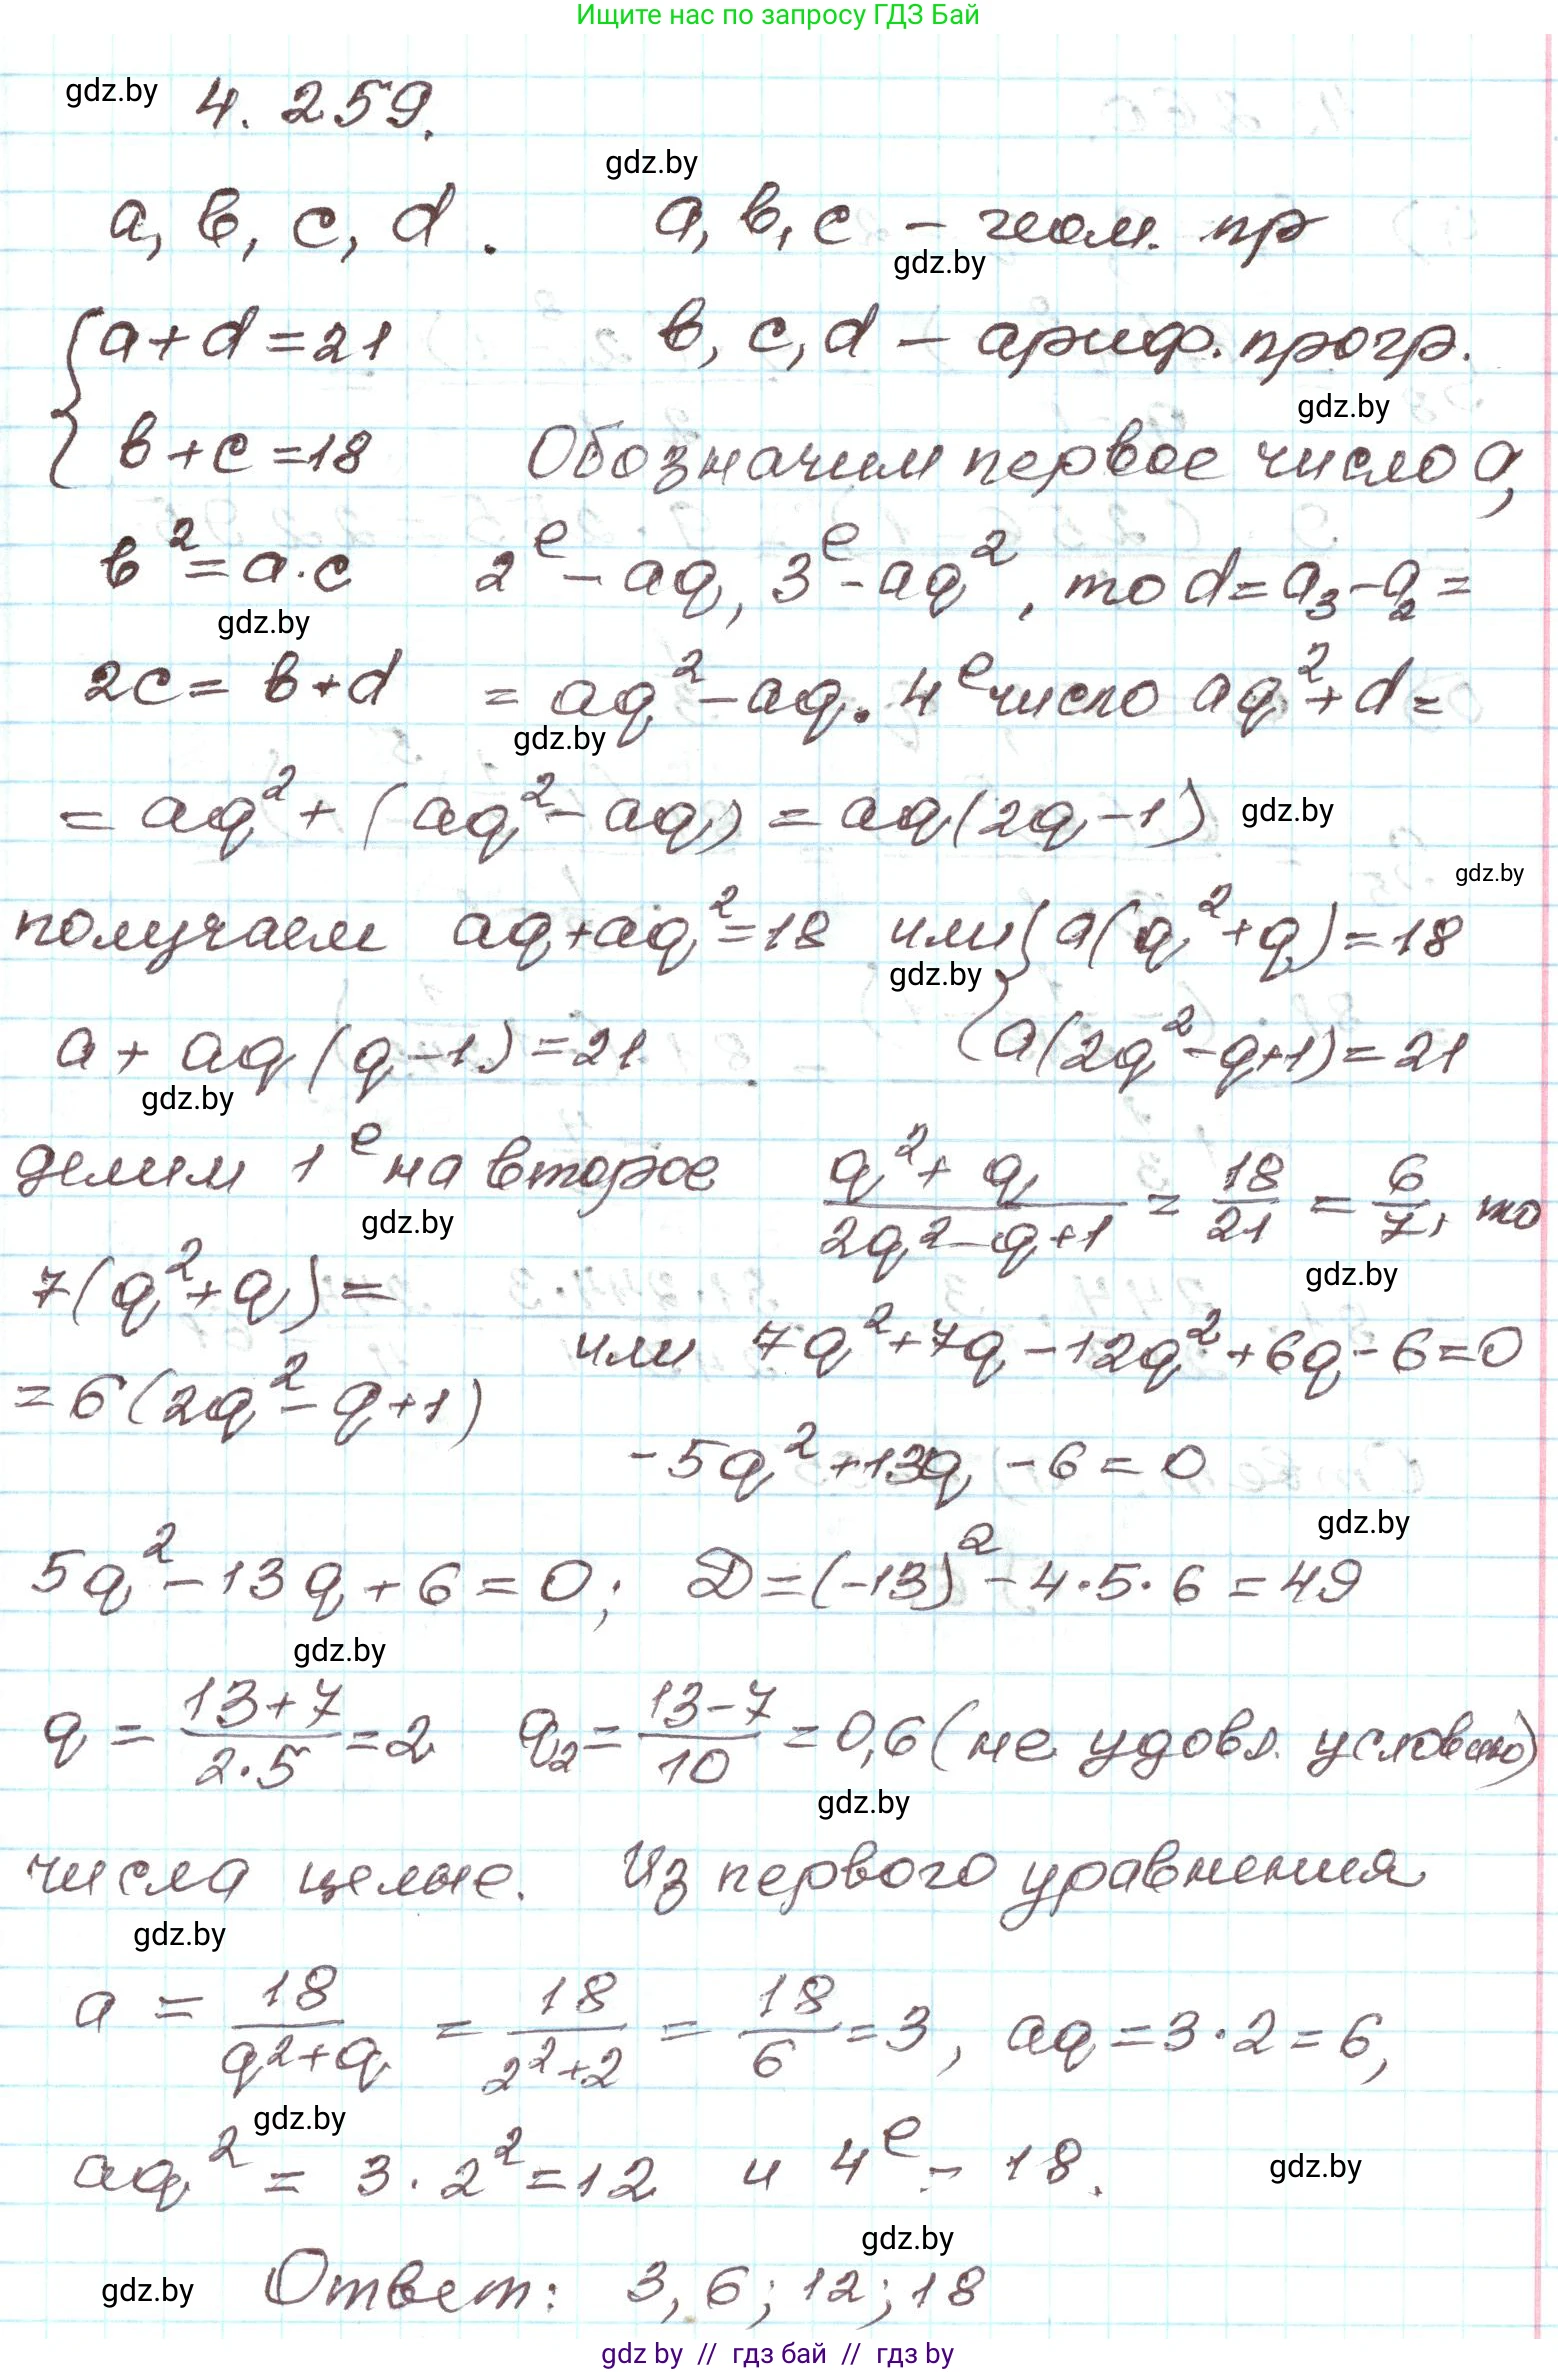 Ищите нас по запросу ГДЗ Бай
gdz.by 4.259.
gdz.by
a, b, c, d. a, b, c – геом. пр
gdz.by
{a+d=21 b, c, d – ариф. прогр.
gdz.by
b+c=18 Обозначим первое число a,
b²=a·c 2е – aq, 3е – aq², то d=a₃–a₂=
gdz.by
2c=b+d =aq²–aq. 4е число aq²+d=
gdz.by
=aq²+(aq²–aq)=aq(2q–1) gdz.by
gdz.by
получаем aq+aq²=18 или {a(q²+q)=18
gdz.by
a+aq(q–1)=21. a(2q²–q+1)=21
gdz.by
делим 1е на второе (q²+q)/(2q²–q+1)=18/21=6/7, то
gdz.by
gdz.by
7(q²+q)=
или 7q²+7q–12q²+6q–6=0
=6(2q²–q+1)
–5q²+13q–6=0
gdz.by
5q²–13q+6=0; D=(–13)²–4·5·6=49
gdz.by
q=(13+7)/(2·5)=2 q₂=(13–7)/10=0,6 (не удовл. условию)
gdz.by
числа целые. Из первого уравнения
gdz.by
a=18/(q²+q)=18/(2²+2)=18/6=3, aq=3·2=6,
gdz.by
aq²=3·2²=12 и 4е – 18.
gdz.by
gdz.by
gdz.by Ответ: 3, 6; 12; 18
gdz by // гдз бай // гдз by